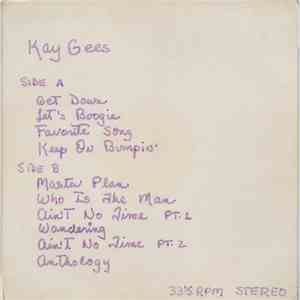 Kay Gees
SIDE A
Get Down
Let's Boogie
Favorite Song
Keep On Bumpin'
SIDE B
Master Plan
Who Is The Man
Ain't No Time PT. 1
Wandering
Ain't No Time PT. 2
Anthology
33⅓ RPM STEREO